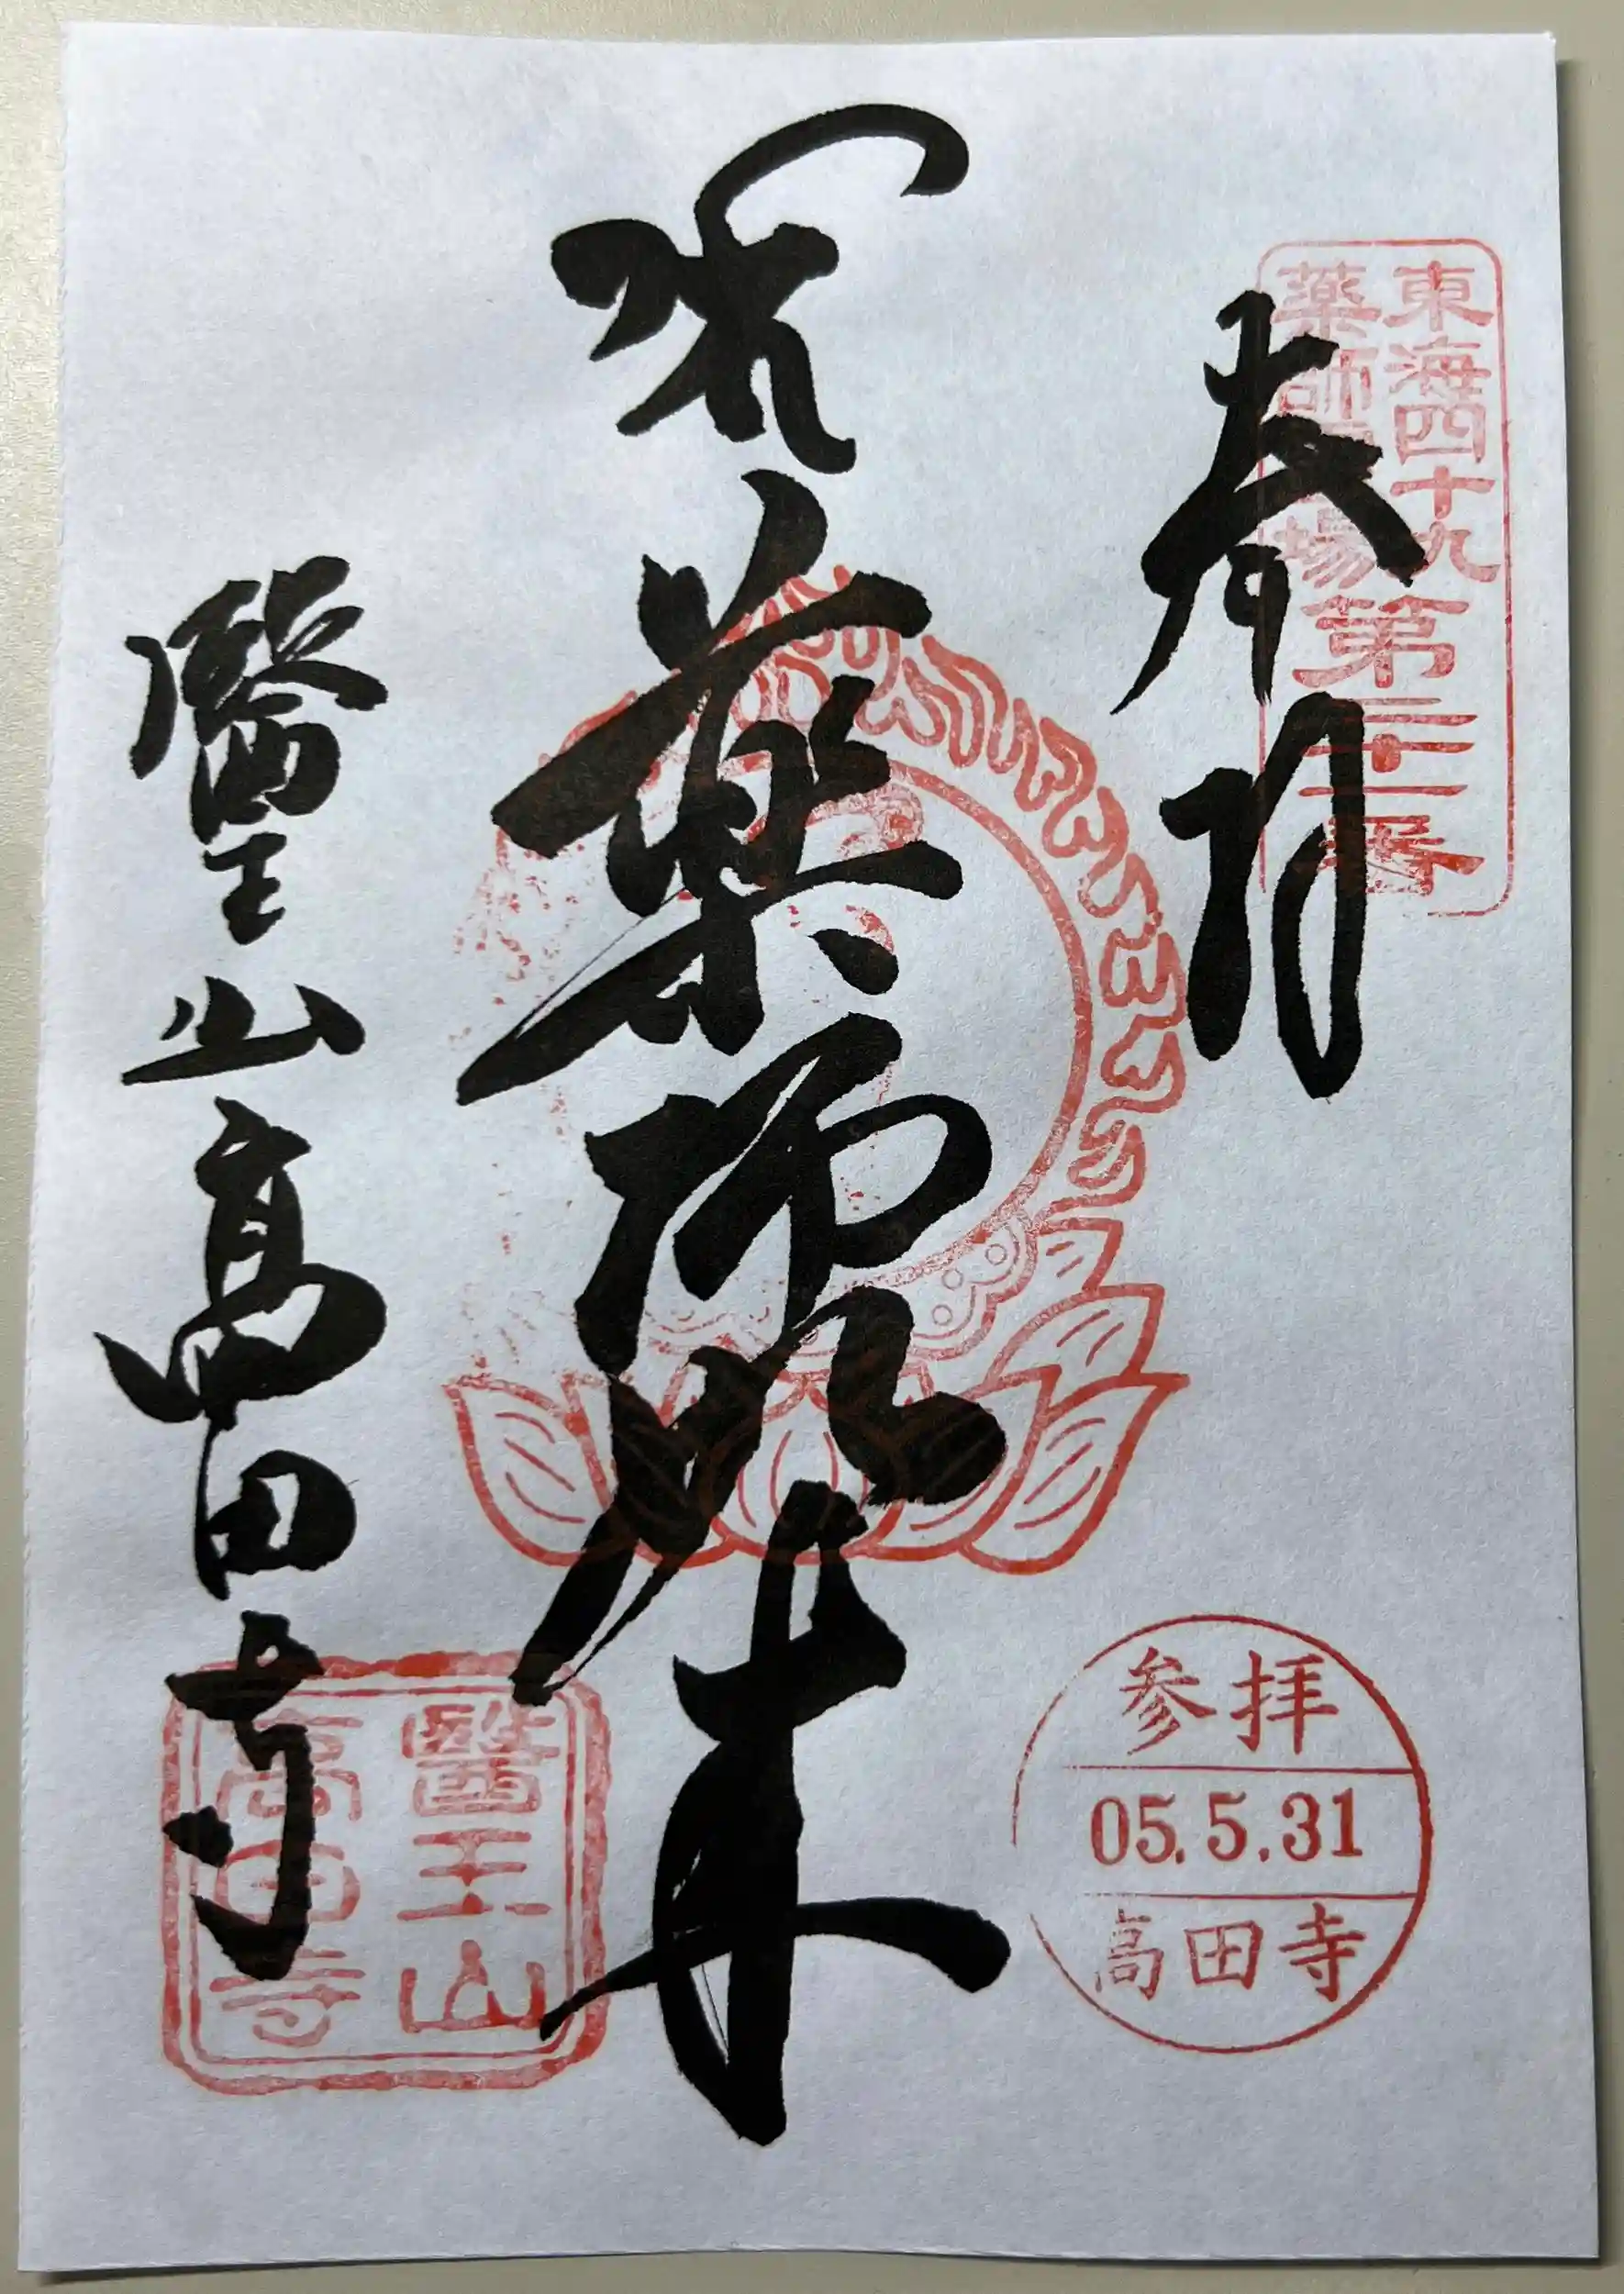 奉拝
東海四十九
薬師霊場第
薬師如来
醫王山高田寺
参拝
05.5.31
高田寺
醫王山
高田寺